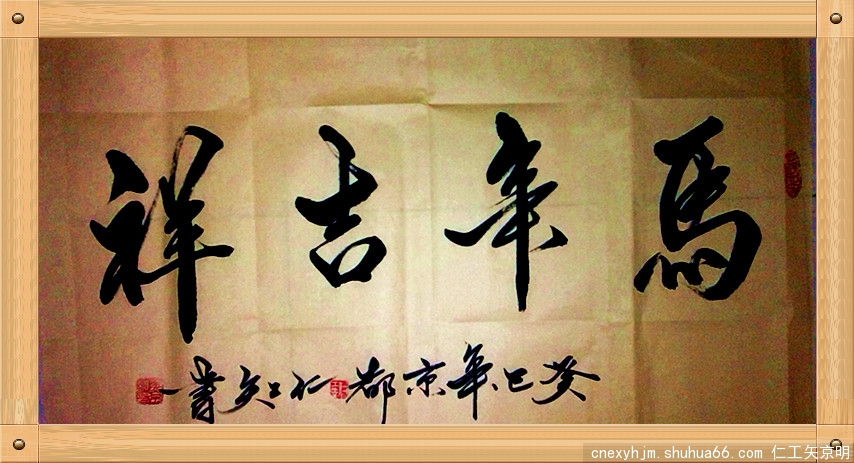 馬年吉祥
癸巳年京都仁工矢書
cnexyhjm.shuhua66.com 仁工矢京明